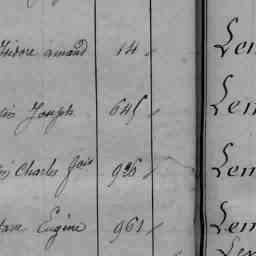 isidore amand 14 Lem
Joseph 645 Lem
Charles fois 926 Lem
Eugène 961 Lem
Lem